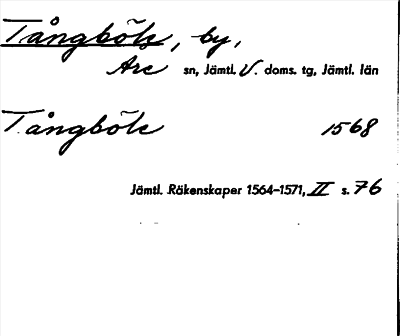 Tångböle, by,
Åre sn, Jämtl. V. doms. tg, Jämtl. län
Tångböle 1568
Jämtl. Räkenskaper 1564-1571, II s. 76